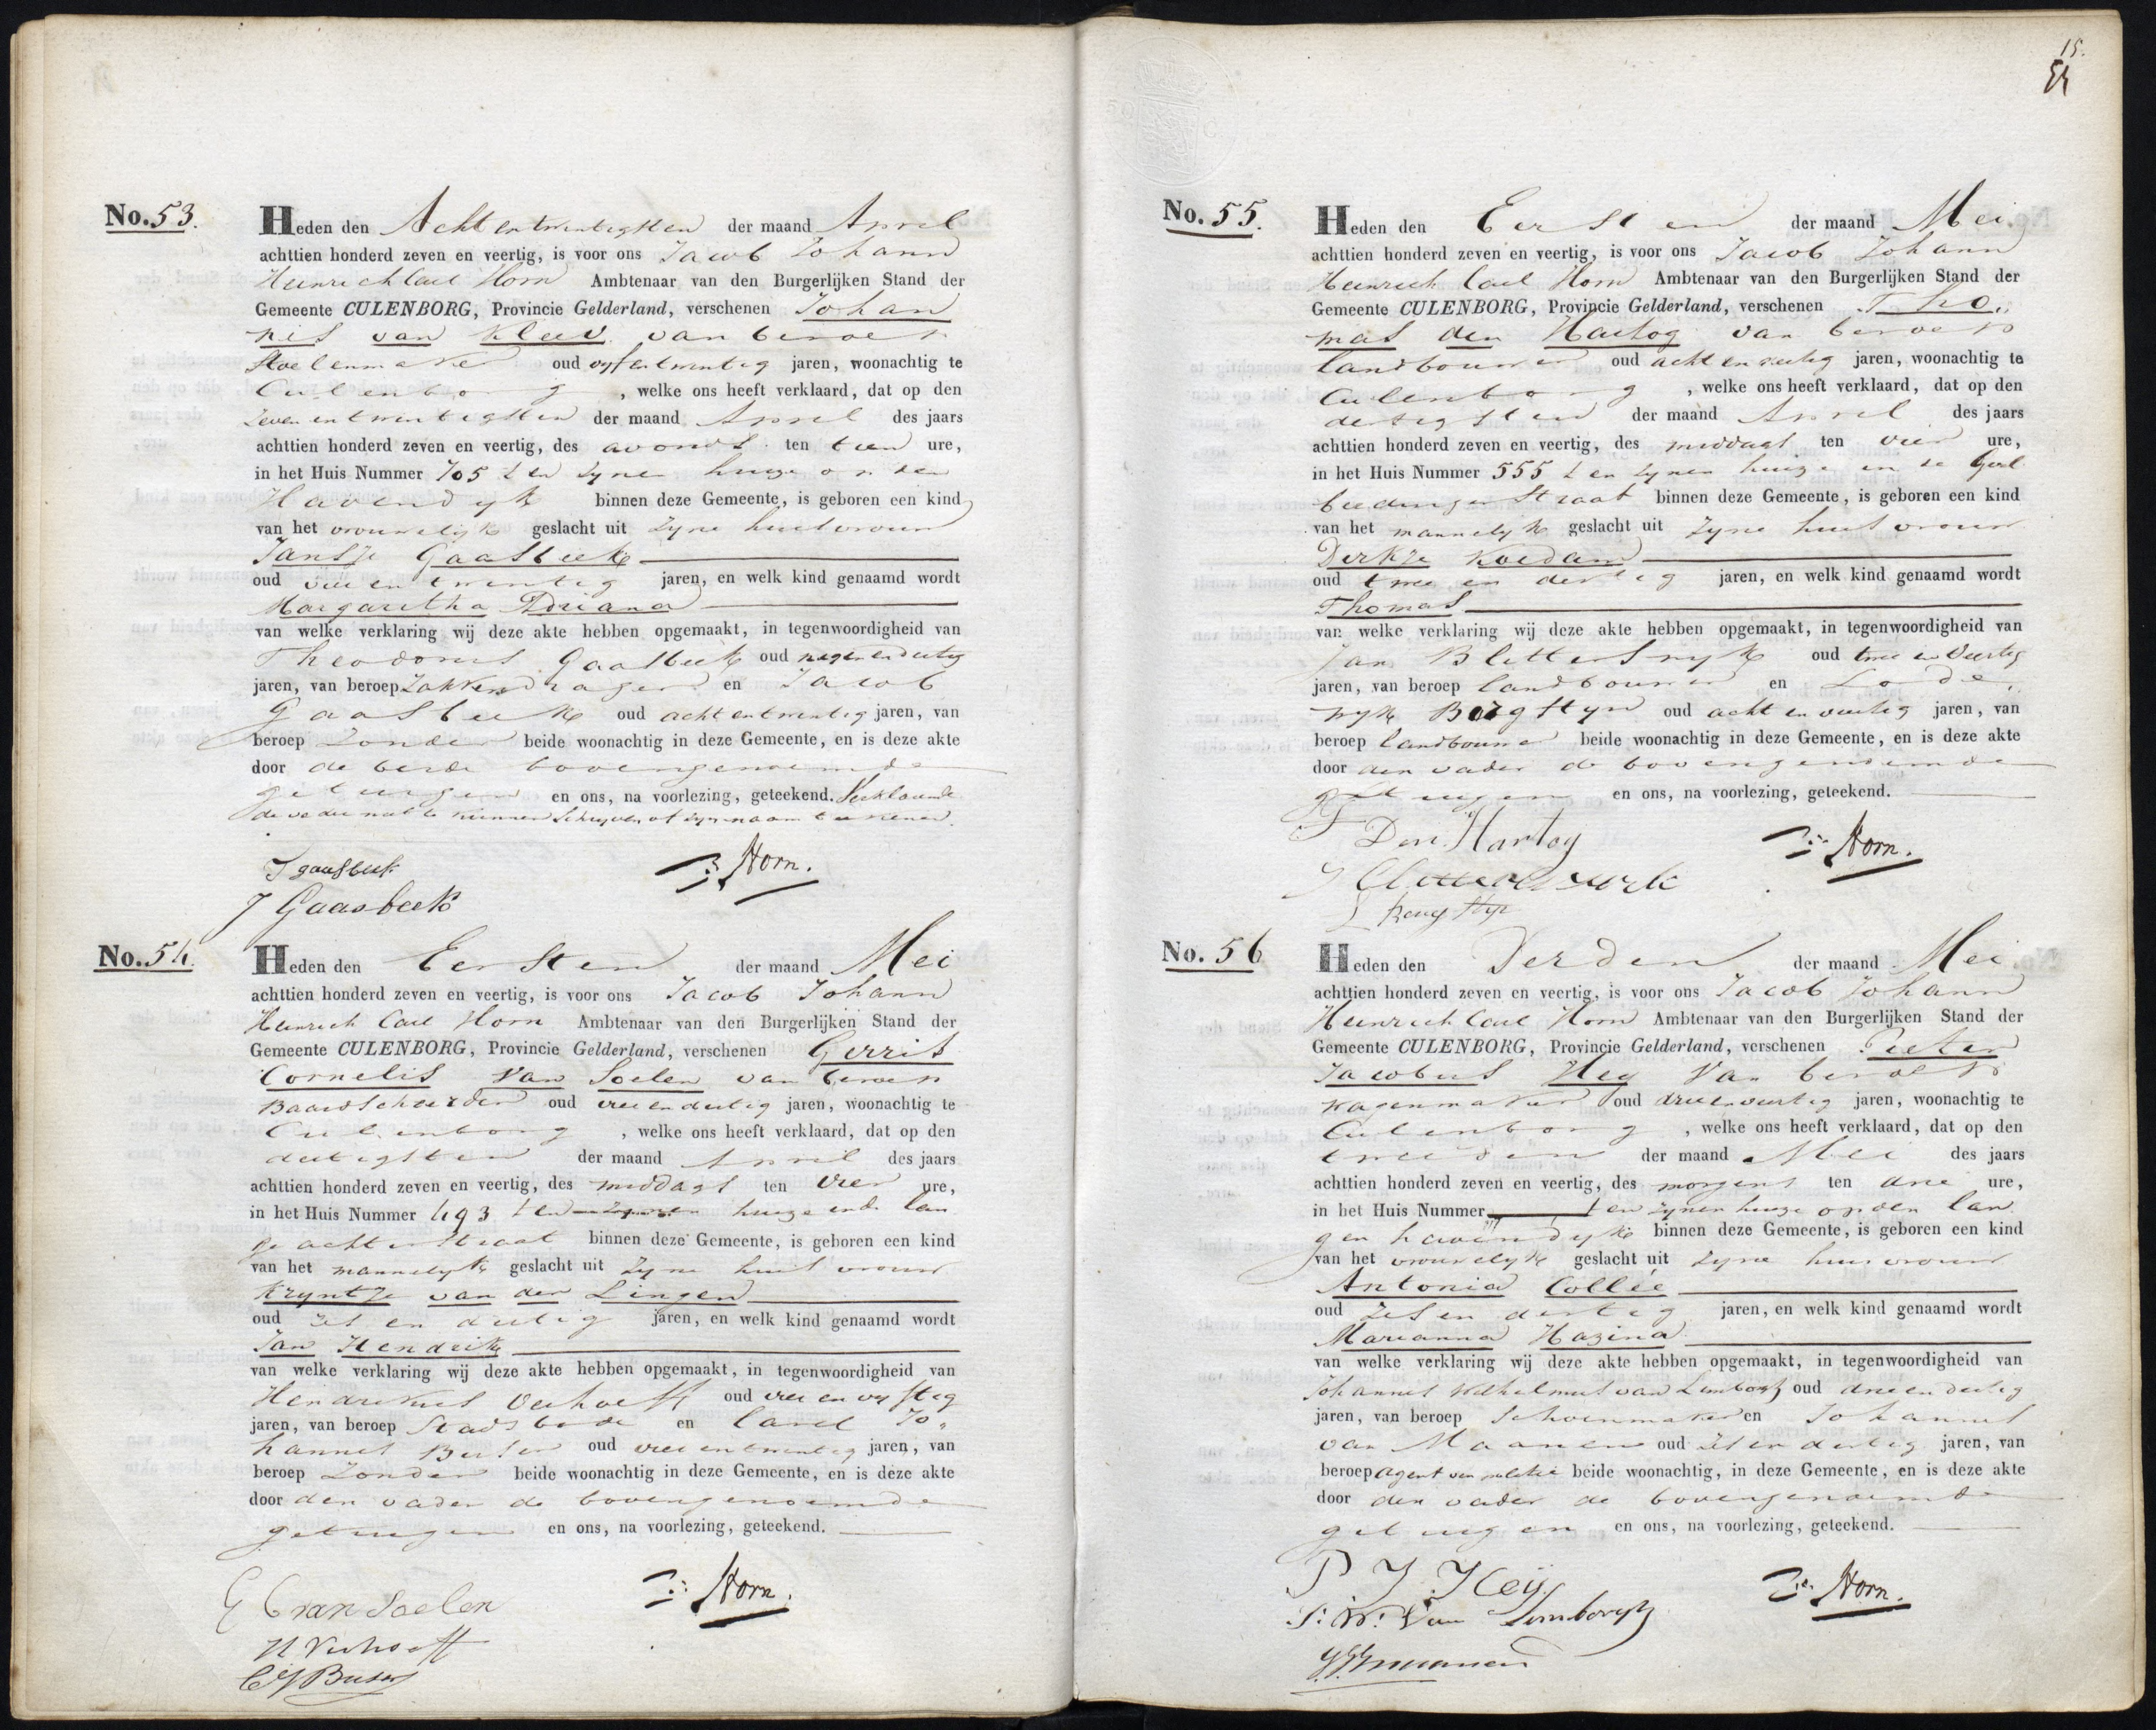 No. 53.
Heden den Acht en twintigsten der maand April
achttien honderd zeven en veertig, is voor ons Jacob Johann
Heinrich Carl Horn Ambtenaar van den Burgerlijken Stand der
Gemeente CULENBORG, Provincie Gelderland, verschenen Johan
nis van Kleev van beroep
Stoelenmaker oud vyf en twintig jaren, woonachtig te
Culenborg, welke ons heeft verklaard, dat op den
zeven en twintigsten der maand April des jaars
achttien honderd zeven en veertig, des avonds ten tien ure,
in het Huis Nummer 705 ten zynen huize op den
Havendyk binnen deze Gemeente, is geboren een kind
van het vrouwelyk geslacht uit zyne huisvrouw
Jansje Gaasbeek
oud vier en twintig jaren, en welk kind genaamd wordt
Margaretha Adriana
van welke verklaring wij deze akte hebben opgemaakt, in tegenwoordigheid van
Theodorus Gaasbeek oud negen en dertig
jaren, van beroep Zakkendrager en Jacob
Gaasbeek oud acht en twintig jaren, van
beroep zonder beide woonachtig in deze Gemeente, en is deze akte
door de beide bovengenoemde
getuigen en ons, na voorlezing, geteekend. Verklarende
de vader niet te kunnen schryven of zyn naam te teekenen.
T gaasbeek
J Gaasbeek
Horn.
No. 54.
Heden den Eersten der maand Mei
achttien honderd zeven en veertig, is voor ons Jacob Johann
Heinrich Carl Horn Ambtenaar van den Burgerlijken Stand der
Gemeente CULENBORG, Provincie Gelderland, verschenen Gerrit
Cornelis van Soelen van beroep
Baardscheerder oud vier en dertig jaren, woonachtig te
Culenborg, welke ons heeft verklaard, dat op den
dertigsten der maand April des jaars
achttien honderd zeven en veertig, des middags ten vier ure,
in het Huis Nummer 493 ten zynen huize in de Lan
ge achterstraat binnen deze Gemeente, is geboren een kind
van het mannelyk geslacht uit zyne huisvrouw
Kryntje van der Lingen
oud zes en dertig jaren, en welk kind genaamd wordt
Jan Hendrik
van welke verklaring wij deze akte hebben opgemaakt, in tegenwoordigheid van
Hendrikus Verhoeff oud vier en vyftig
jaren, van beroep Stadsbode en Carel Jo„
hannes oud vier en twintig jaren, van
beroep zonder beide woonachtig in deze Gemeente, en is deze akte
door den vader de bovengenoemde
getuigen en ons, na voorlezing, geteekend.
G C van Soelen
H Verhoeff
Horn.
15.
No. 55.
Heden den Eersten der maand Mei
achttien honderd zeven en veertig, is voor ons Jacob Johann
Heinrich Carl Horn Ambtenaar van den Burgerlijken Stand der
Gemeente CULENBORG, Provincie Gelderland, verschenen Tho„
mas den Hartog van beroep
landbouwer oud acht en veertig jaren, woonachtig te
Culenborg, welke ons heeft verklaard, dat op den
dertigsten der maand April des jaars
achttien honderd zeven en veertig, des middags ten vier ure,
in het Huis Nummer 555 ten zynen huize in de
straat binnen deze Gemeente, is geboren een kind
van het mannelyk geslacht uit zyne huisvrouw
Derkje Koedam
oud twee en dertig jaren, en welk kind genaamd wordt
Thomas
van welke verklaring wij deze akte hebben opgemaakt, in tegenwoordigheid van
Jan Blitterswyk oud twee en veertig
jaren, van beroep landbouwer en Lode„
wyk Bergstyn oud acht en veertig jaren, van
beroep landbouwer beide woonachtig in deze Gemeente, en is deze akte
door den vader de bovengenoemde
getuigen en ons, na voorlezing, geteekend.
T Den Hartog
Horn.
No. 56
Heden den Derden der maand Mei
achttien honderd zeven en veertig, is voor ons Jacob Johann
Heinrich Carl Horn Ambtenaar van den Burgerlijken Stand der
Gemeente CULENBORG, Provincie Gelderland, verschenen Pieter
Jacobus Hey van beroep
wagenmaker oud drie en veertig jaren, woonachtig te
Culenborg, welke ons heeft verklaard, dat op den
tweeden der maand Mei des jaars
achttien honderd zeven en veertig, des morgens ten drie ure,
in het Huis Nummer ten zynen huize op den lan
gen havendyk binnen deze Gemeente, is geboren een kind
van het vrouwelyk geslacht uit zyne huisvrouw
Antonia Collée
oud zes en dertig jaren, en welk kind genaamd wordt
Marianna Hazina
van welke verklaring wij deze akte hebben opgemaakt, in tegenwoordigheid van
Johannes Wilhelmus van Limborgh oud drie en dertig
jaren, van beroep Schoenmaker en Johannes
van Maanen oud zes en dertig jaren, van
beroep agent van politie beide woonachtig, in deze Gemeente, en is deze akte
door den vader de bovengenoemde
getuigen en ons, na voorlezing, geteekend.
P J Heij
J: W: Van Limborgh
Horn.